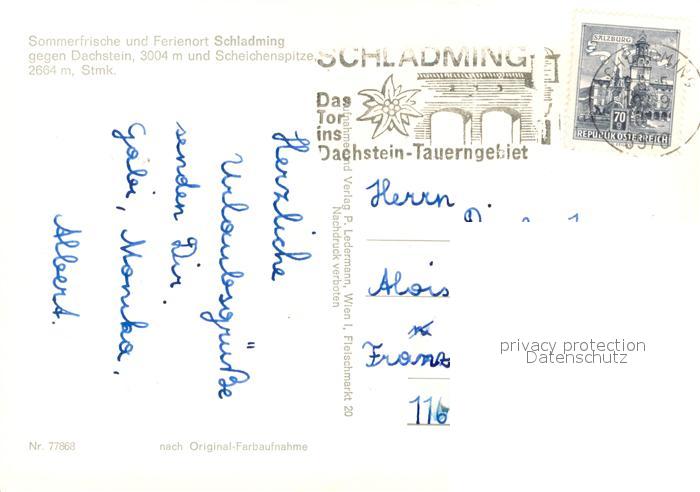 Sommerfrische und Ferienort Schladming
gegen Dachstein, 3004 m und Scheichenspitze
2664 m, Stmk.
SCHLADMING
Das
Tor
ins
Dachstein-Tauerngebiet
SALZBURG
70
REPUBLIK ÖSTERREICH
Herzliche
Urlaubsgrüße
senden Dir
Gabi, Monika,
Albert.
Verlag P. Ledermann, Wien I, Fleischmarkt 20
Nachdruck verboten
Herrn
Alois
Franz
116
privacy protection
Datenschutz
Nr. 77868
nach Original-Farbaufnahme